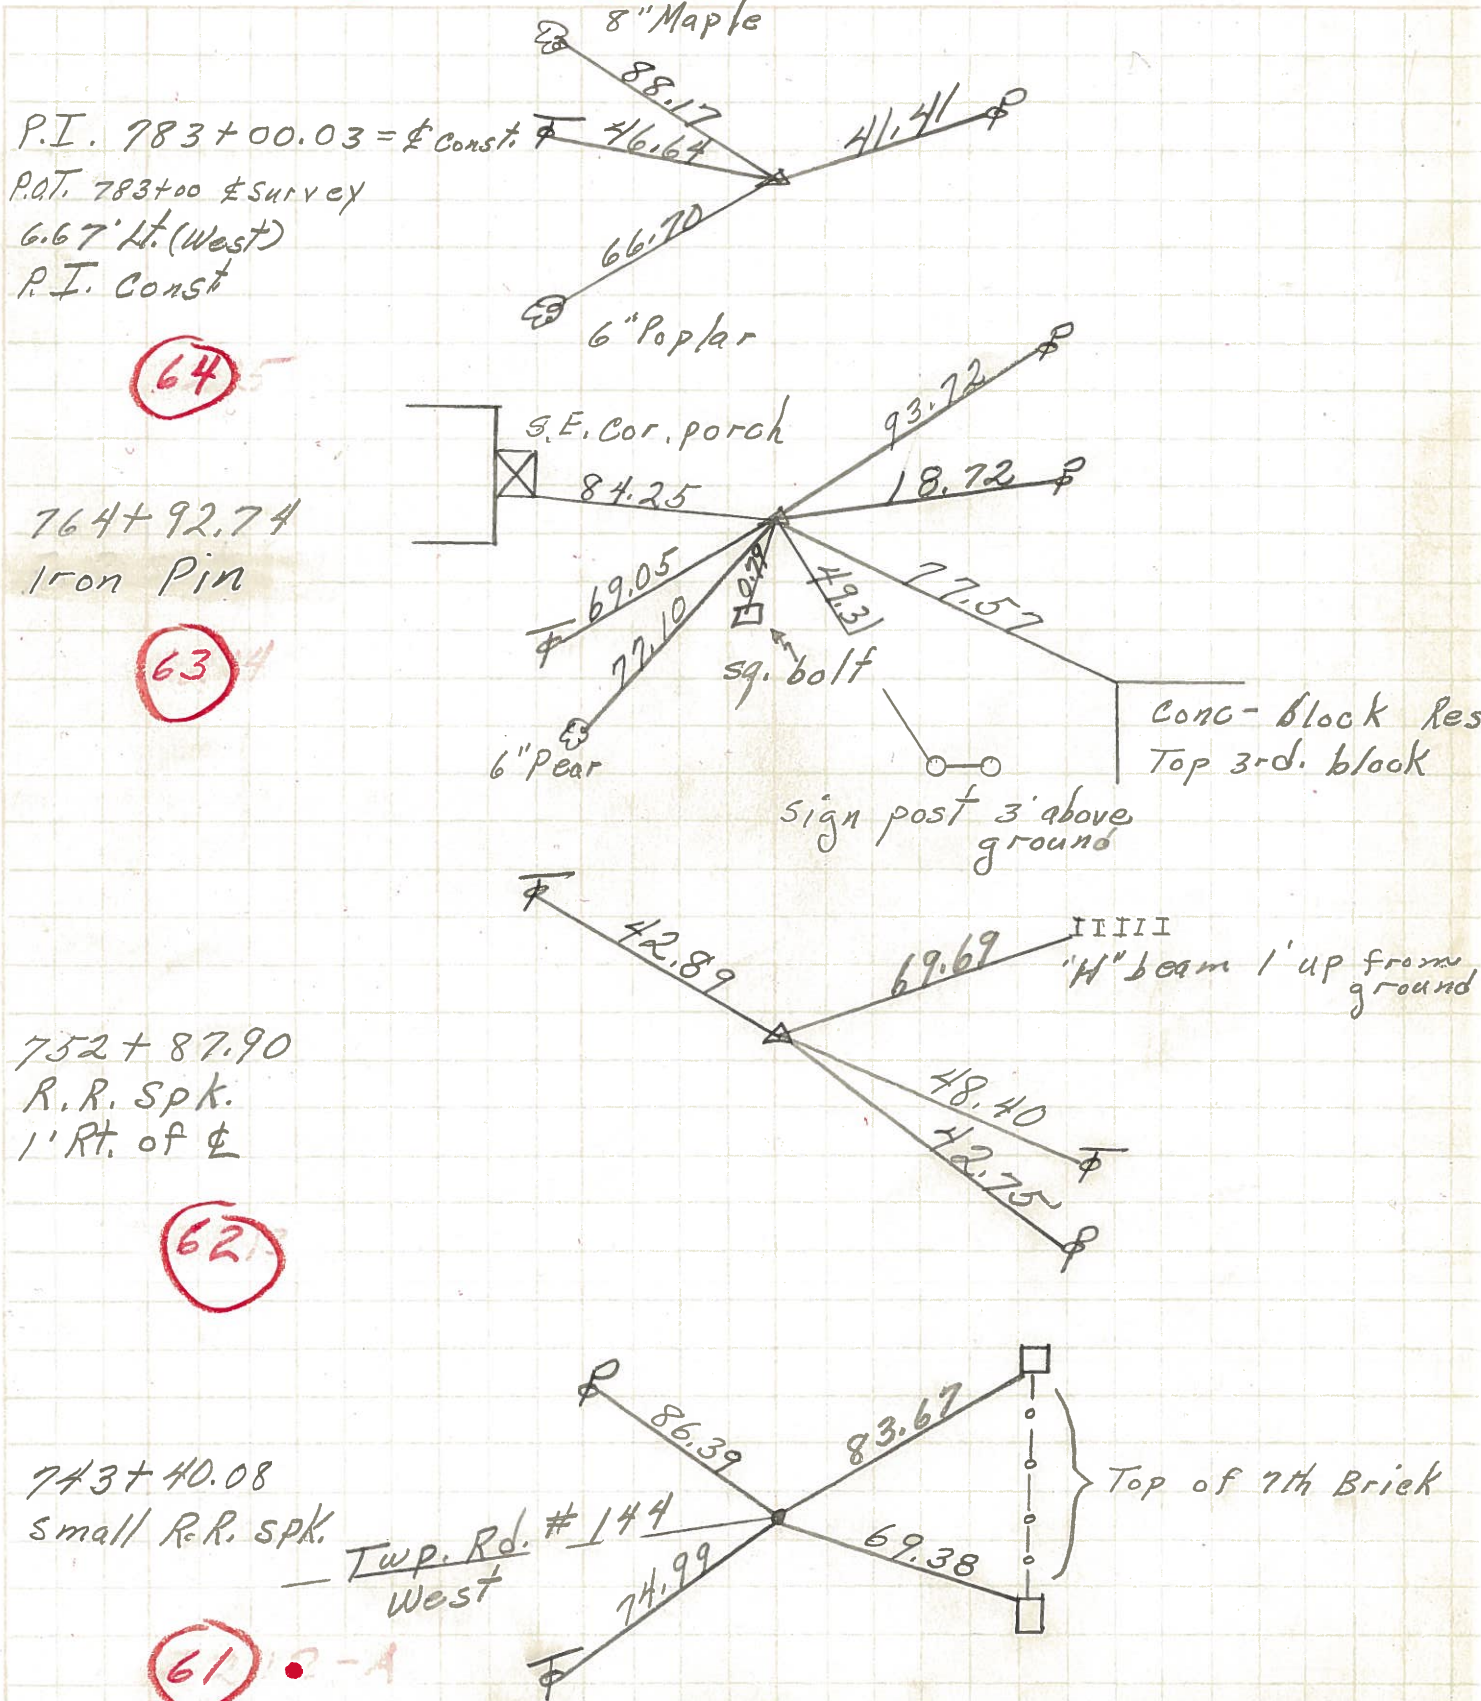 8" Maple
88.17
P.I. 783+00.03 = ℄ Const.
46.64
41.41
P.O.T. 783+00 ℄ Survey
6.67' Lt. (West)
66.70
P.I. Const
6" Poplar
64
93.72
S.E. Cor. porch
84.25
18.72
764+92.74
Iron Pin
69.05
77.10
0.79
49.31
77.57
63
sq. bolt
6" Pear
Conc-Block Res
Top 3rd. block
sign post 3' above
ground
42.89
69.69
IIIII
"H" beam 1' up from
ground
752+87.90
R.R. Spk.
1' Rt. of ℄
48.40
42.75
62
86.39
83.67
743+40.08
Small R.R. spk.
Top of 7th Brick
Twp. Rd. # 144
West
74.99
69.38
61